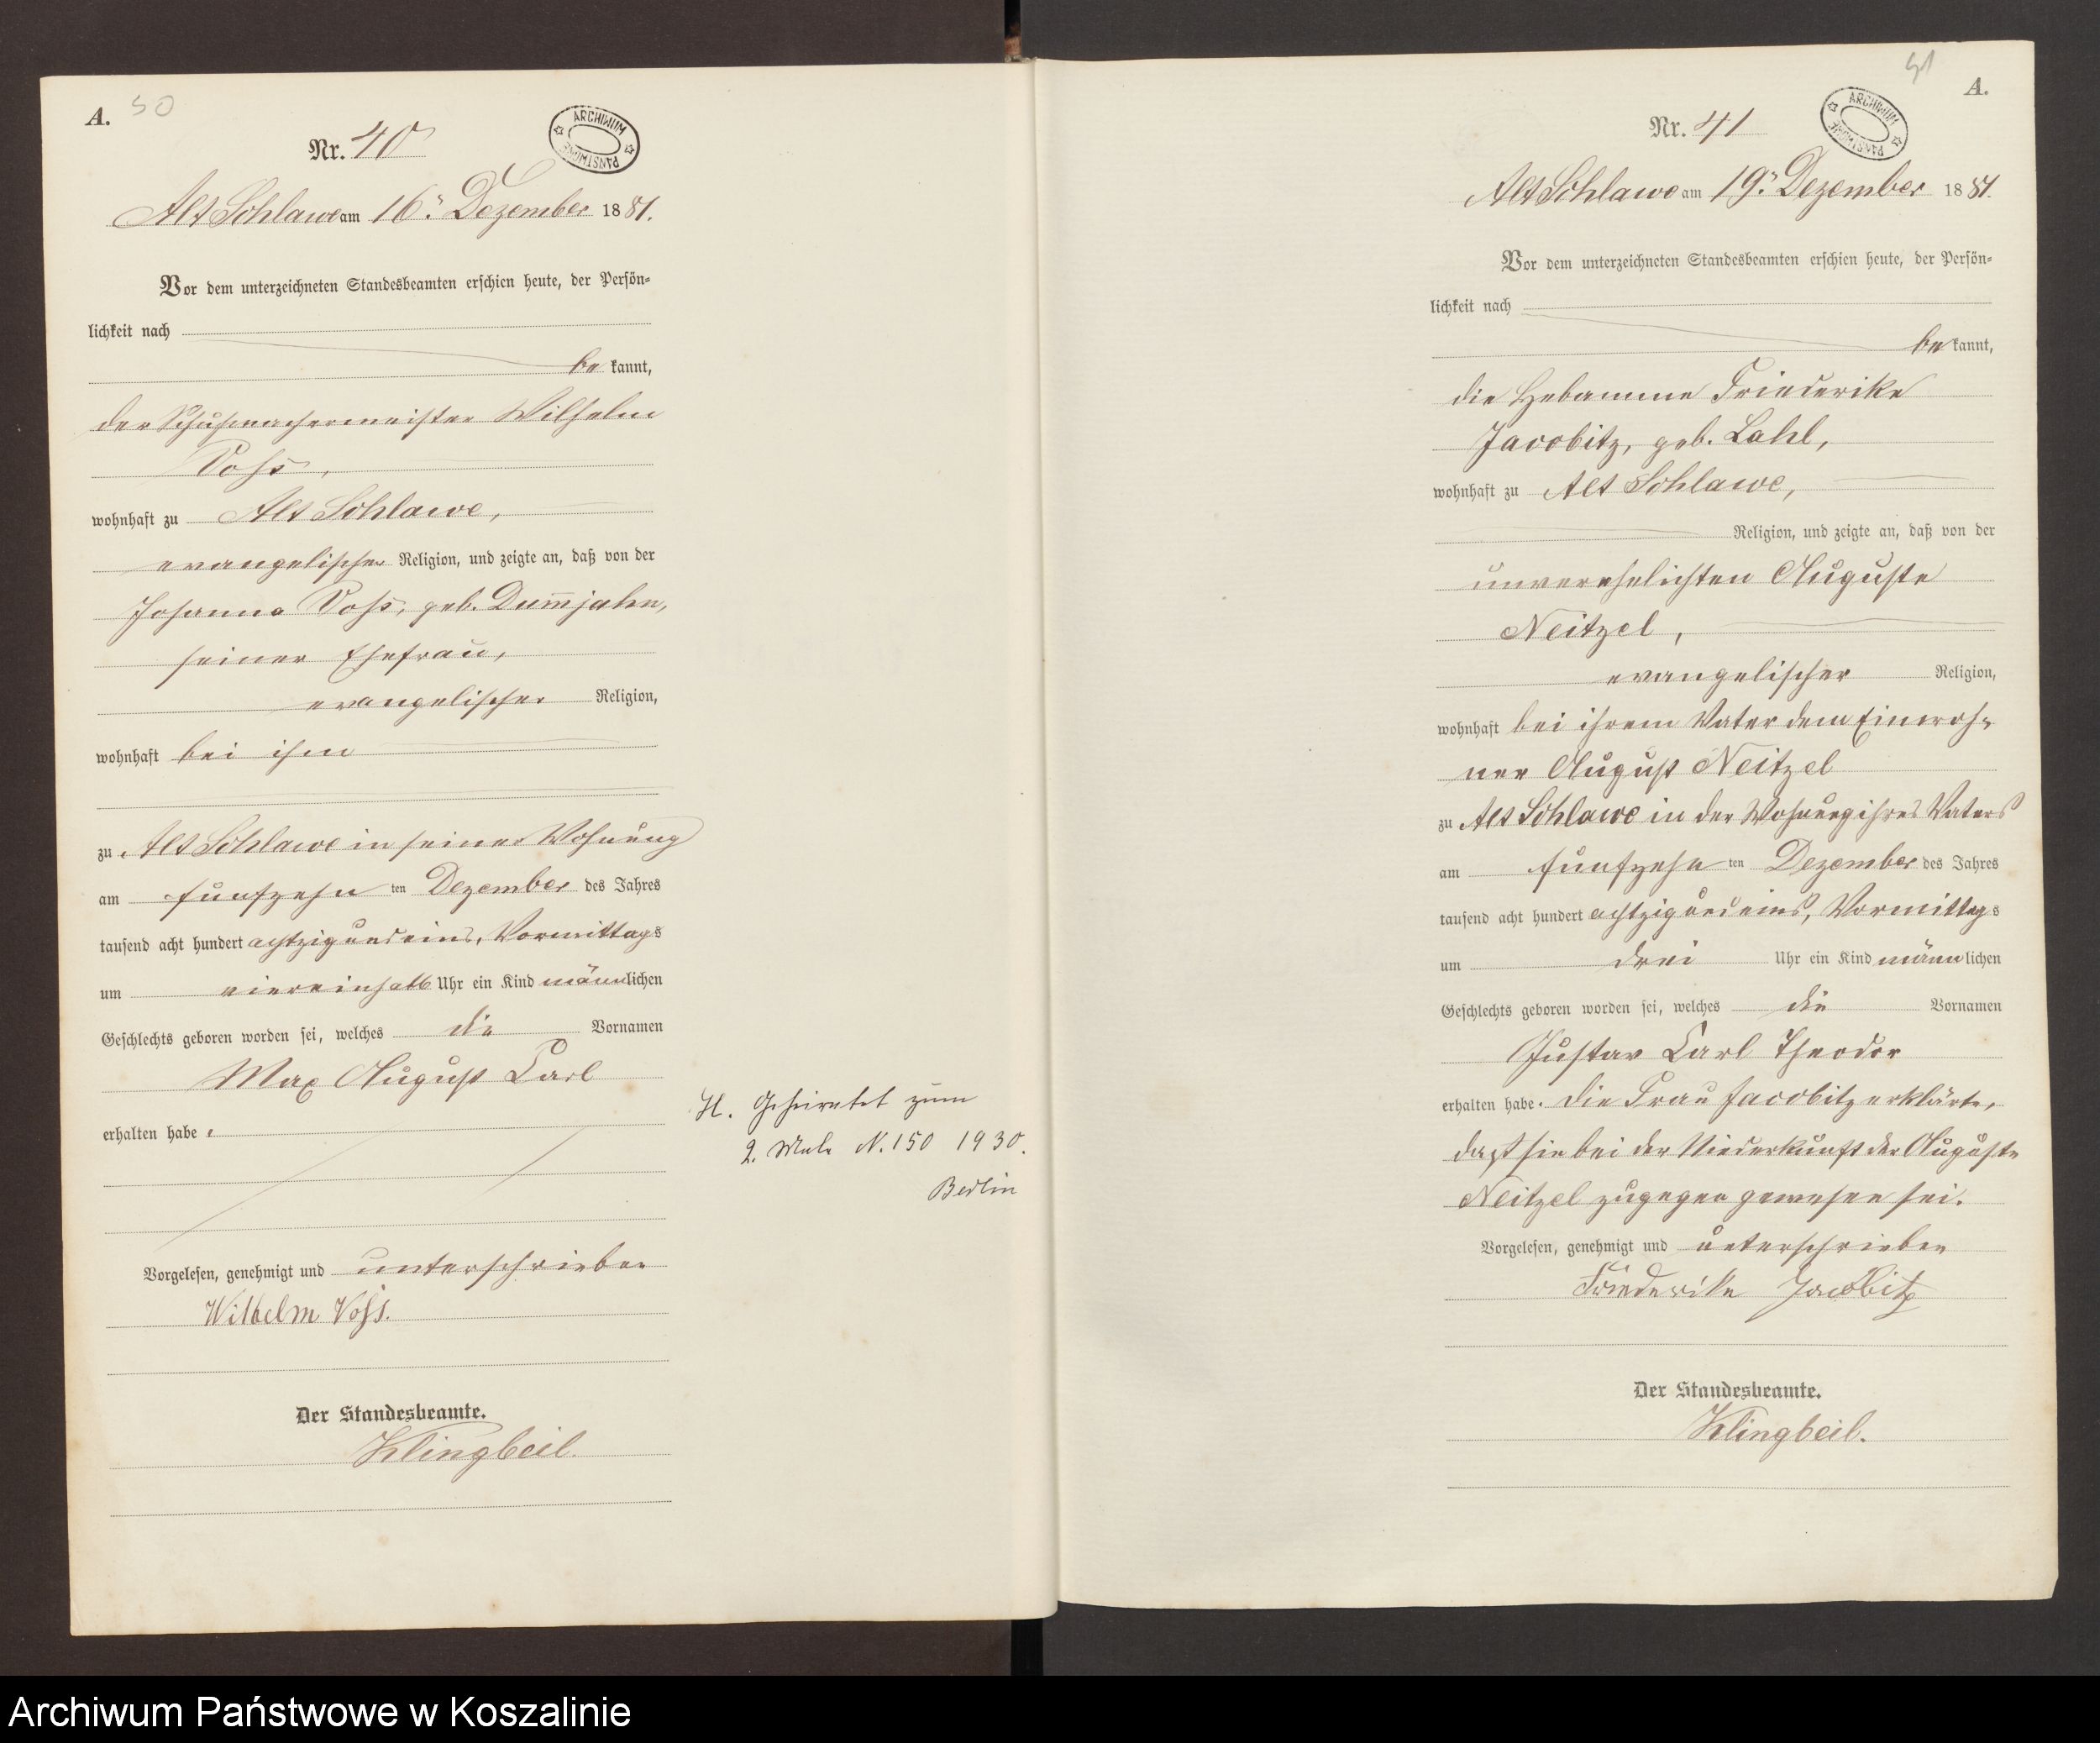 A. 50
ARCHIWUM PAŃSTWOWE
Nr. 40
Alt Schlawe am 16. Dezember 1881.
Vor dem unterzeichneten Standesbeamten erschien heute, der Persön-
lichkeit nach
be kannt,
der Schuhmachermeister Wilhelm
Voß,
wohnhaft zu Alt Schlawe,
evangelischer Religion, und zeigte an, daß von der
Johanna Voß, geb. Dum̅jahn,
seiner Ehefrau,
evangelischer Religion,
wohnhaft bei ihm
zu Alt Schlawe in seiner Wohnung
am fünfzehn ten Dezember des Jahres
tausend acht hundert achtzig und eins, Vormittags
um viereinhalb Uhr ein Kind männlichen
Geschlechts geboren worden sei, welches die Vornamen
Max August Carl
erhalten habe.
Vorgelesen, genehmigt und unterschrieben
Wilhelm Voß.
Der Standesbeamte.
Klingbeil.
H. Geheiratet zum
2. Male N. 150 1930.
Berlin
51
A.
ARCHIWUM PAŃSTWOWE
Nr. 41
Alt Schlawe am 19. Dezember 1881.
Vor dem unterzeichneten Standesbeamten erschien heute, der Persön-
lichkeit nach
be kannt,
die Hebamme Friederike
Jacobitz, geb. Lahl,
wohnhaft zu Alt Schlawe,
Religion, und zeigte an, daß von der
unverehelichten Auguste
Neitzel,
evangelischer Religion,
wohnhaft bei ihrem Vater dem Einwoh-
ner August Neitzel
zu Alt Schlawe in der Wohnung ihres Vaters
am fünfzehn ten Dezember des Jahres
tausend acht hundert achtzig und eins, Vormittags
um drei Uhr ein Kind männlichen
Geschlechts geboren worden sei, welches die Vornamen
Gustav Carl Theodor
erhalten habe. Die Frau Jacobitz erklärte,
daß sie bei der Niederkunft der Auguste
Neitzel zugegen gewesen sei.
Vorgelesen, genehmigt und unterschrieben
Friederike Jacobitz
Der Standesbeamte.
Klingbeil.
Archiwum Państwowe w Koszalinie